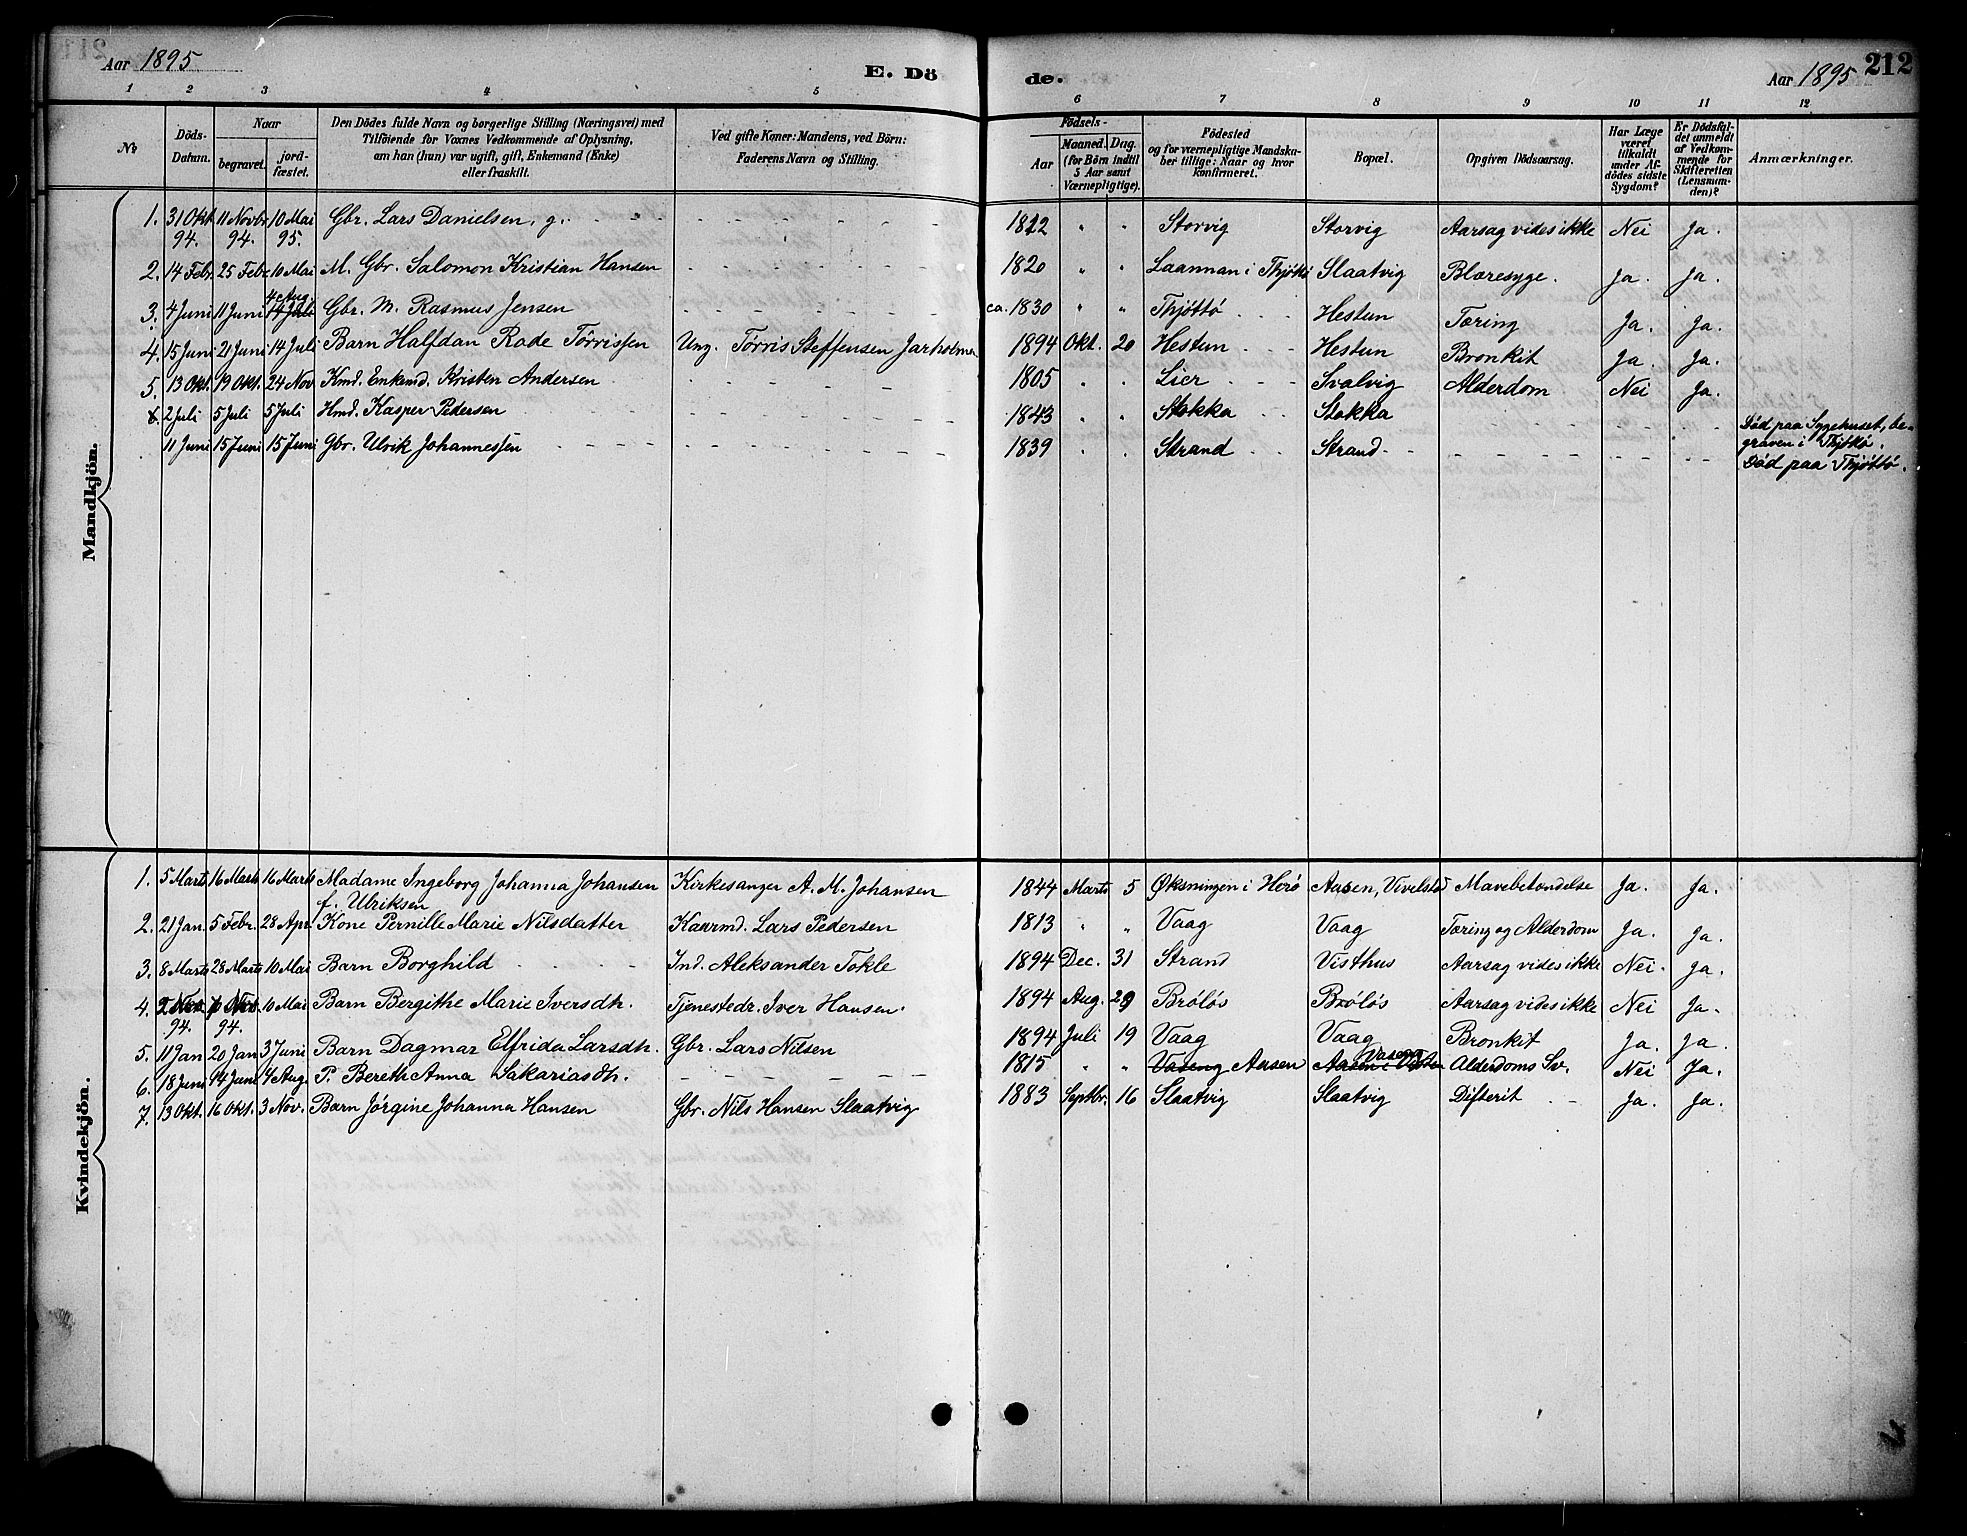 Aar 1895 E. Dö de. Aar 1895 212
1 2 3 4 5 6 7 8 9 10 11 12
No
Döds-Datum.
Naar
begravet.
jord-fæstet.
Den Dödes fulde Navn og borgerlige Stilling (Næringsvei) med
Tilföiende for Voxnes Vedkommende af Oplysning,
am han (hun) var ugift, gift, Enkemand (Enke)
eller fraskilt.
Ved gifte Koner: Mandens, ved Börn:
Faderens Navn og Stilling.
Födsels-
Aar
Maaned. Dag.
(for Börn indtil
5 Aar samt
Værnepligtige).
Födested
og for værnepligtige Mandska-
ber tillige: Naar og hvor
konfirmeret.
Bopæl.
Opgiven Dödsaarsag.
Har Læge
været
tilkaldt
under Af-
dödes sidste
Sygdom?
Er Dödsfal-
det anmeldt
af Vedkom-
mende for
Skifteretten
(Lensman-
den)?
Anmærkninger.
Mandkjön.
1. 31 Okt. 94. 11 Novbr. 94. 10 Mai 95. Gbr. Lars Danielsen, g. 1822 " " Storvig Storvig Aarsag vides ikke Nei Ja.
2. 14 Febr. 25 Febr. 10 Mai M. Gbr. Salomon Kristian Hansen 1820 " " Laannan i Thjöttö Slaatvig Blæresyge. Ja. Ja.
3. 4 Juni 11 Juni 14 Juli 4 Aug. Gbr. M. Rasmus Jensen ca. 1830 " " Thjöttö Hestun Tæring Ja. Ja.
4. 15 Juni 21 Juni 14 Juli Barn Halfdan Rode Törrissen Ung. Törris Steffensen Jarholmen 1894 Okt. 20 Hestun Hestun Bronkit Ja. Ja.
5. 13 Okt. 19 Okt. 24 Nov Kmd. Enkemd. Kristen Andersen 1805 " " Lier Svalvig Alderdom Nei Ja.
6. 2 Juli 5 Juli 5 Juli Hmd. Kasper Pedersen 1843 " " Stokka Stokka Död paa Sygehuset, be-
graven i Thjöttö.
11 Juni 15 Juni 15 Juni Gbr. Ulrik Johannessen 1839 " " Strand Strand Död paa Thjöttö.
Kvindekjön.
1. 5 Marts 16 Marts 16 Marts Madame Ingeborg Johanna Johansen
f. Ulriksen Kirkesanger A. M. Johansen 1844 Marts 5 Øksningen i Herö Aasen, Vivelstad Mavebetændelse Ja. Ja.
2. 21 Jan. 5 Febr. 28 Apr. Kone Pernille Marie Nilsdatter Kaarmd. Lars Pedersen 1813 " " Vaag Vaag Tæring og Alderdom Ja. Ja.
3. 8 Marts 28 Marts 10 Mai Barn Borghild Ind. Aleksander Tokle 1894 Dec. 31 Strand Visthus Aarsag vides ikke Nei. Ja.
4. 2 Nov. 94. Nov. 94. 10 Mai Barn Bergithe Marie Iversdh. Tjenestedr. Iver Hansen. 1894 Aug. 29 Brölös Brölös Aarsag vides ikke Nei Ja.
5. 11 Jan 20 Jan 3 Juni Barn Dagmar Elfrida Larsdh. Gbr. Lars Nilsen 1894 Juli 19 Vaag Vaag Bronkit Ja. Ja.
6. 18 Juni 14 Juni 4 Aug. P. Bereth Anna Sakariasdh. 1815 " " Vaseng Aasen Aasen i Vaseng Alderdoms Sv. Nei Ja.
7. 13 Okt. 16 Okt. 3 Nov. Barn Jörgine Johanna Hansen Gbr. Nils Hansen Slaatvig 1883 Septbr. 16 Slaatvig Slaatvig Difterit Ja. Ja.